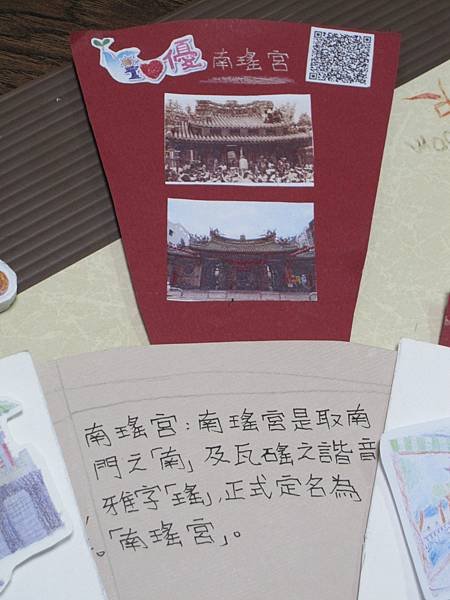 優 南瑤宮
南瑤宮：南瑤宮是取南
門之「南」及瓦磘之諧音
雅字「瑤」，正式定名為
「南瑤宮」。